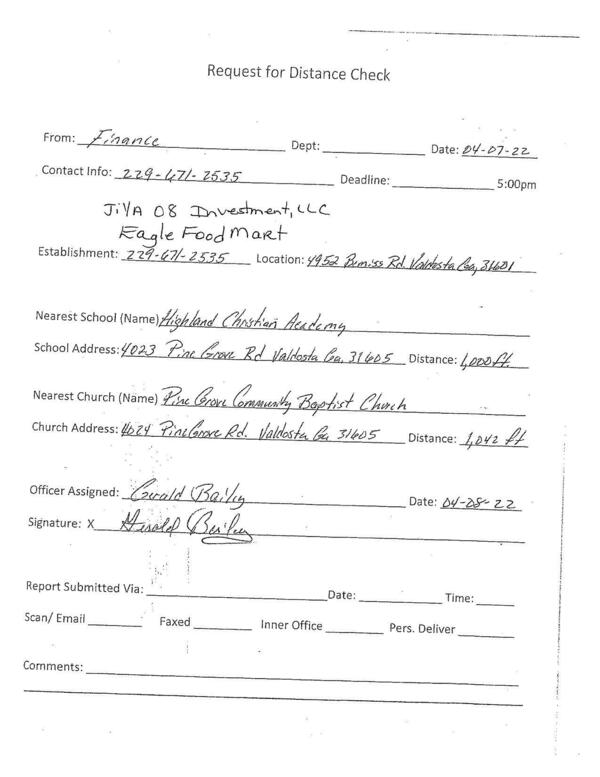 Request for Distance Check
From: Finance Dept: Date: 04-07-22
Contact Info: 229-671-2535 Deadline: 5:00pm
JiVA 08 Investment, LLC
Eagle Food Mart
Establishment: 229-671-2535 Location: 4952 Bemiss Rd. Valdosta Ga, 31601
Nearest School (Name) Highland Christian Academy
School Address: 4023 Pine Grove Rd Valdosta Ga. 31605 Distance: 1,000 ft.
Nearest Church (Name) Pine Grove Community Baptist Church
Church Address: 4024 Pine Grove Rd. Valdosta Ga 31605 Distance: 1,042 ft
Officer Assigned: Gerald Bailey Date: 04-08-22
Signature: X Gerald Bailey
Report Submitted Via: Date: Time:
Scan/ Email Faxed Inner Office Pers. Deliver
Comments: